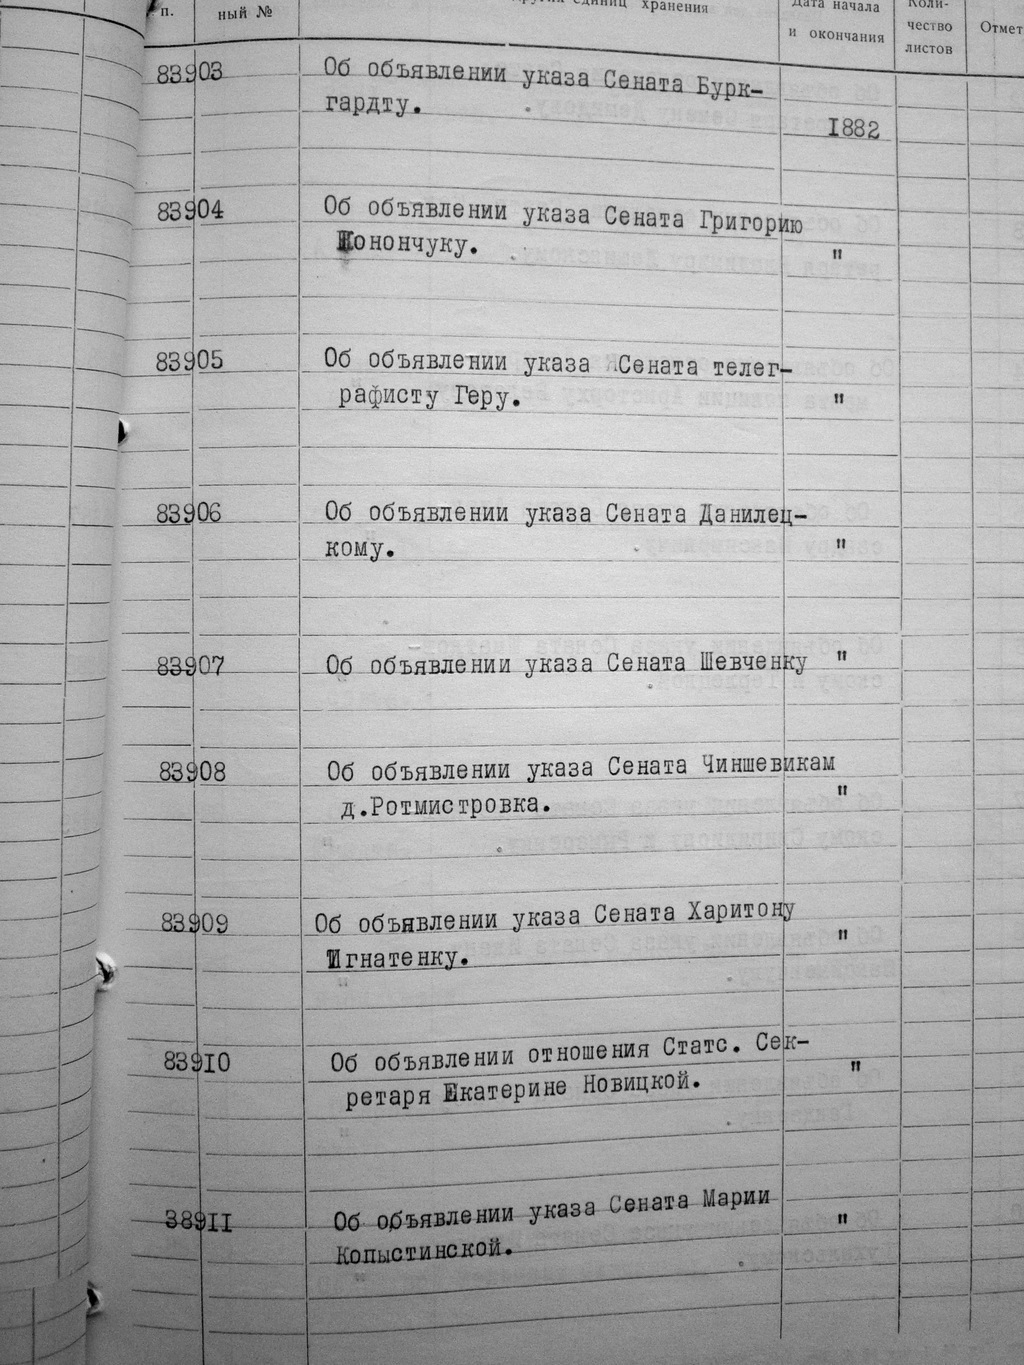 п.
ный №
других единиц хранения
Дата начала
и окончания
Коли-
чество
листов
Отмет
83903 Об объявлении указа Сената Бурк-
гардту.
1882
83904 Об объявлении указа Сената Григорию
Конончуку. "
83905 Об объявлении указа Сената телег-
рафисту Геру. "
83906 Об объявлении указа Сената Данилец-
кому. "
83907 Об объявлении указа Сената Шевченку "
83908 Об объявлении указа Сената Чиншевикам
д.Ротмистровка. "
83909 Об объявлении указа Сената Харитону
Игнатенку. "
83910 Об объявлении отношения Статс. Сек-
ретаря Екатерине Новицкой. "
38911 Об объявлении указа Сената Марии
Копыстинской. "